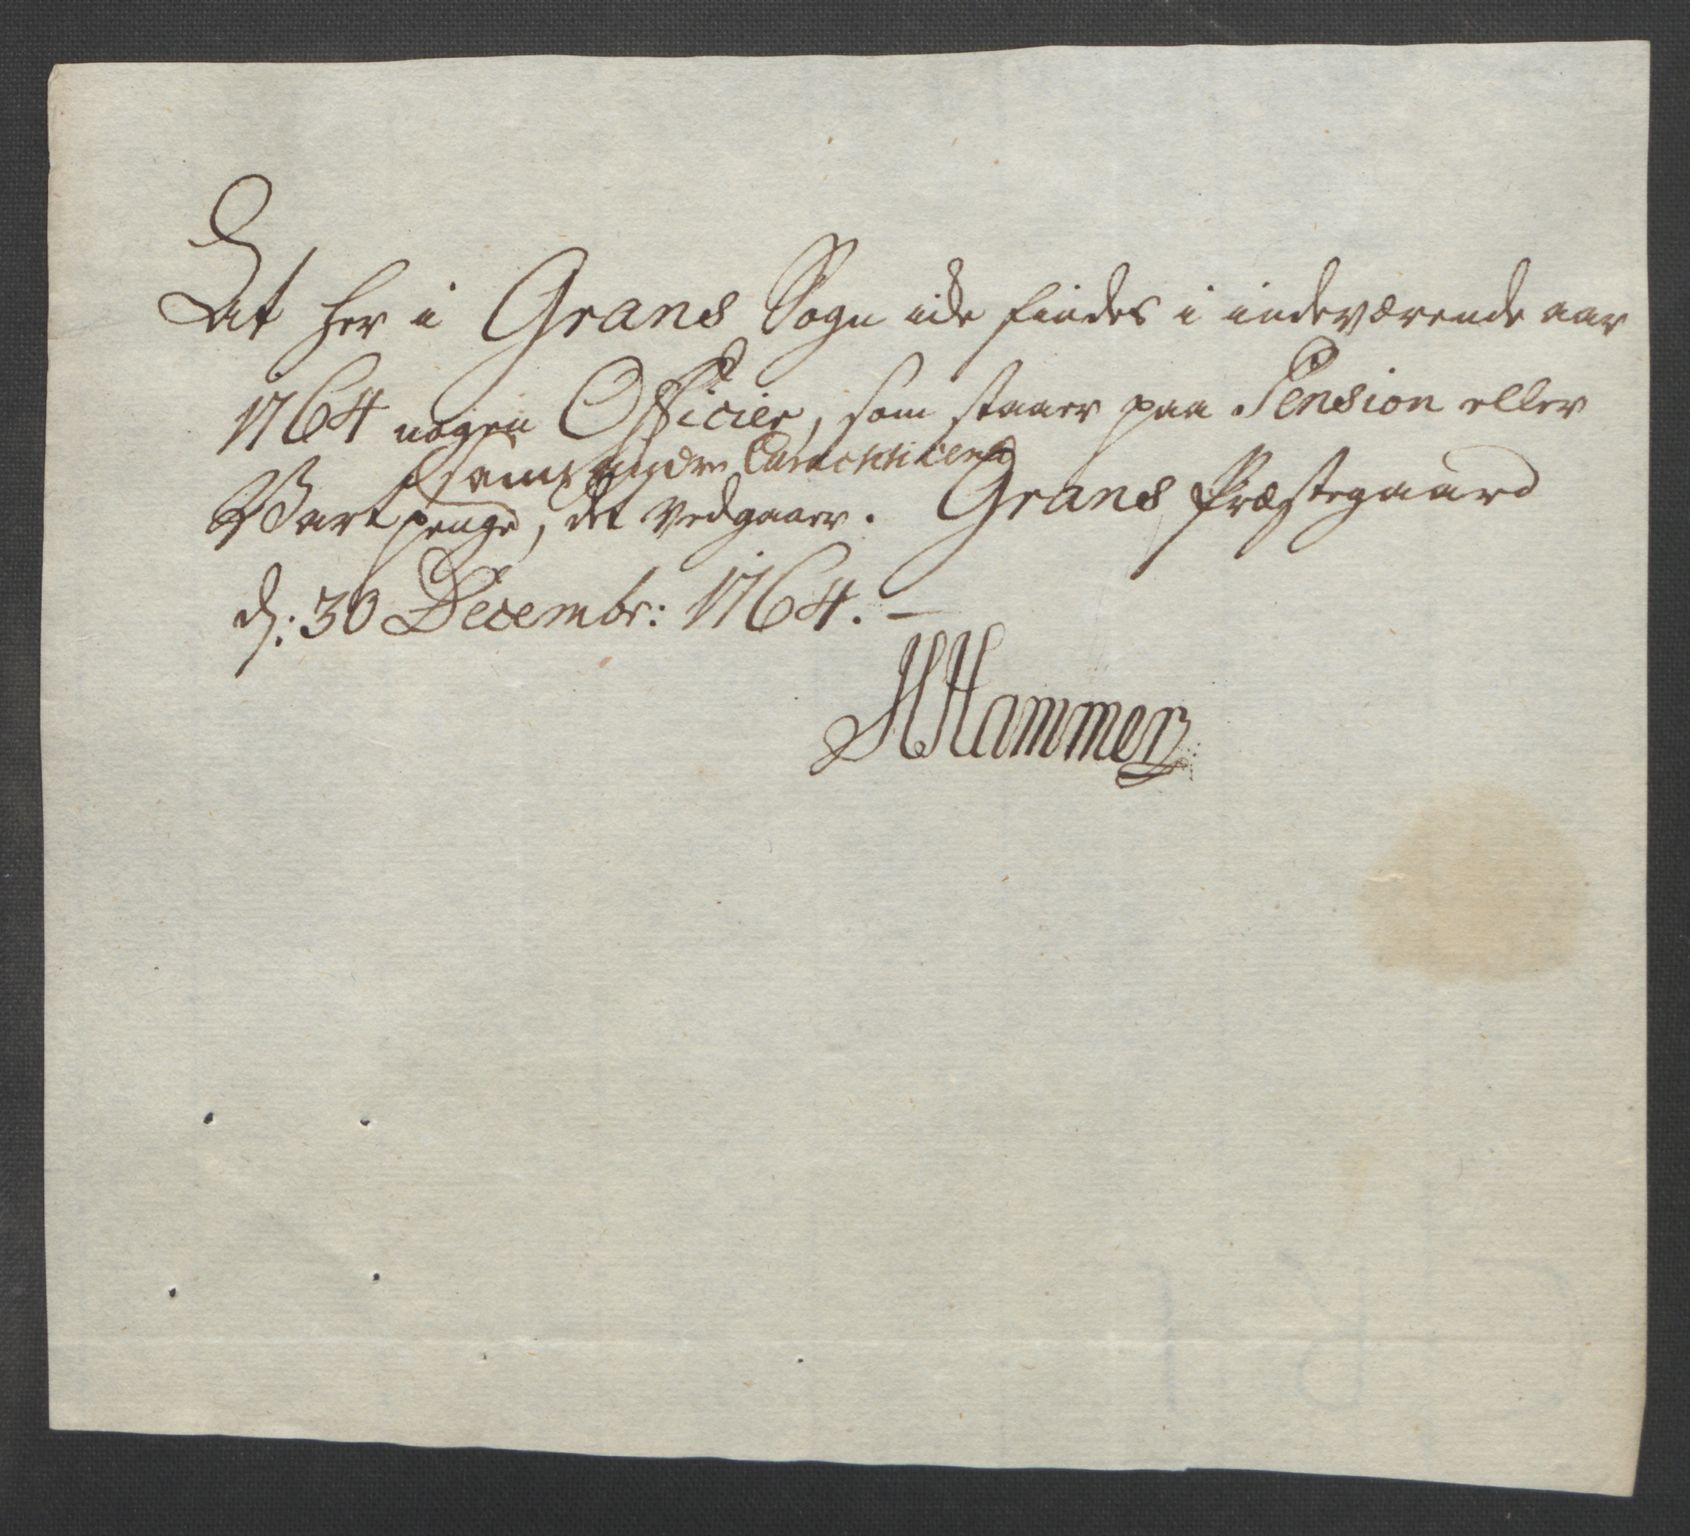 At her i Grans Sogn icke findes i indeværende aar
1764 nogen Officier, som staaer paa Pension eller
samt andre Caracteriserede
Vartpenge, det vedgaaer. Grans Præstegaard
d: 30 Decembr: 1764. —
HHammer